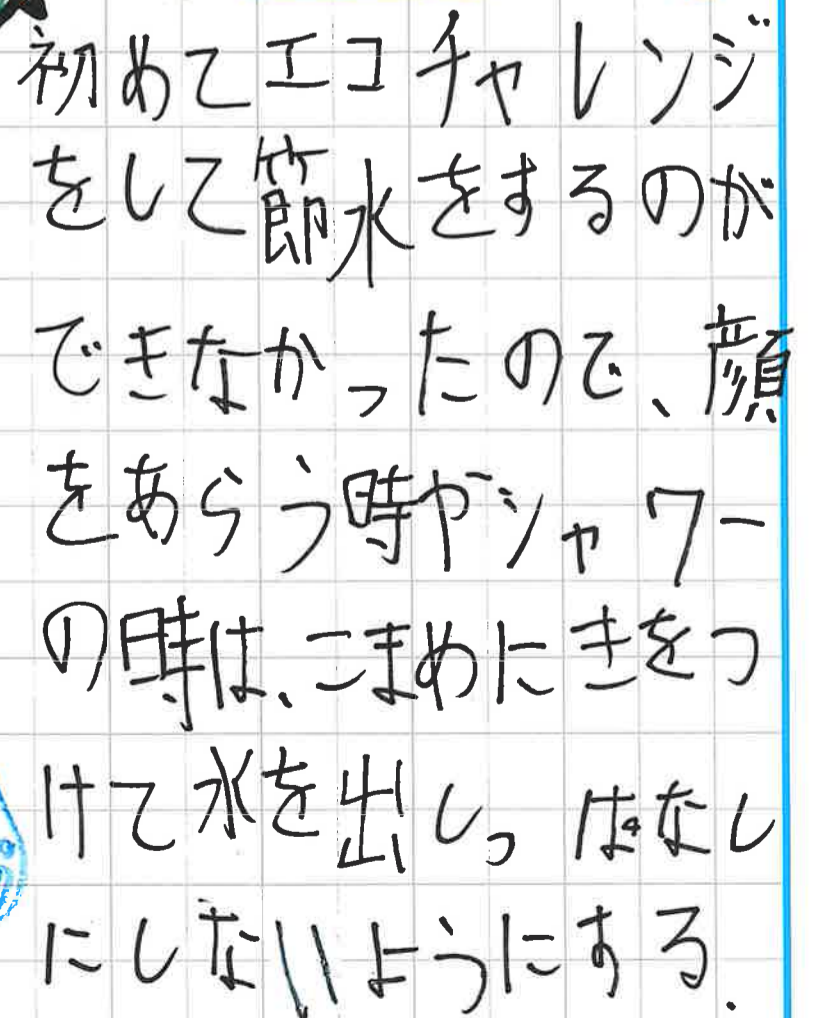 初めてエコチャレンジ
をして節水をするのが
できなかったので、顔
をあらう時やシャワー
の時は、こまめにきをつ
けて水を出しっぱなし
にしないようにする.